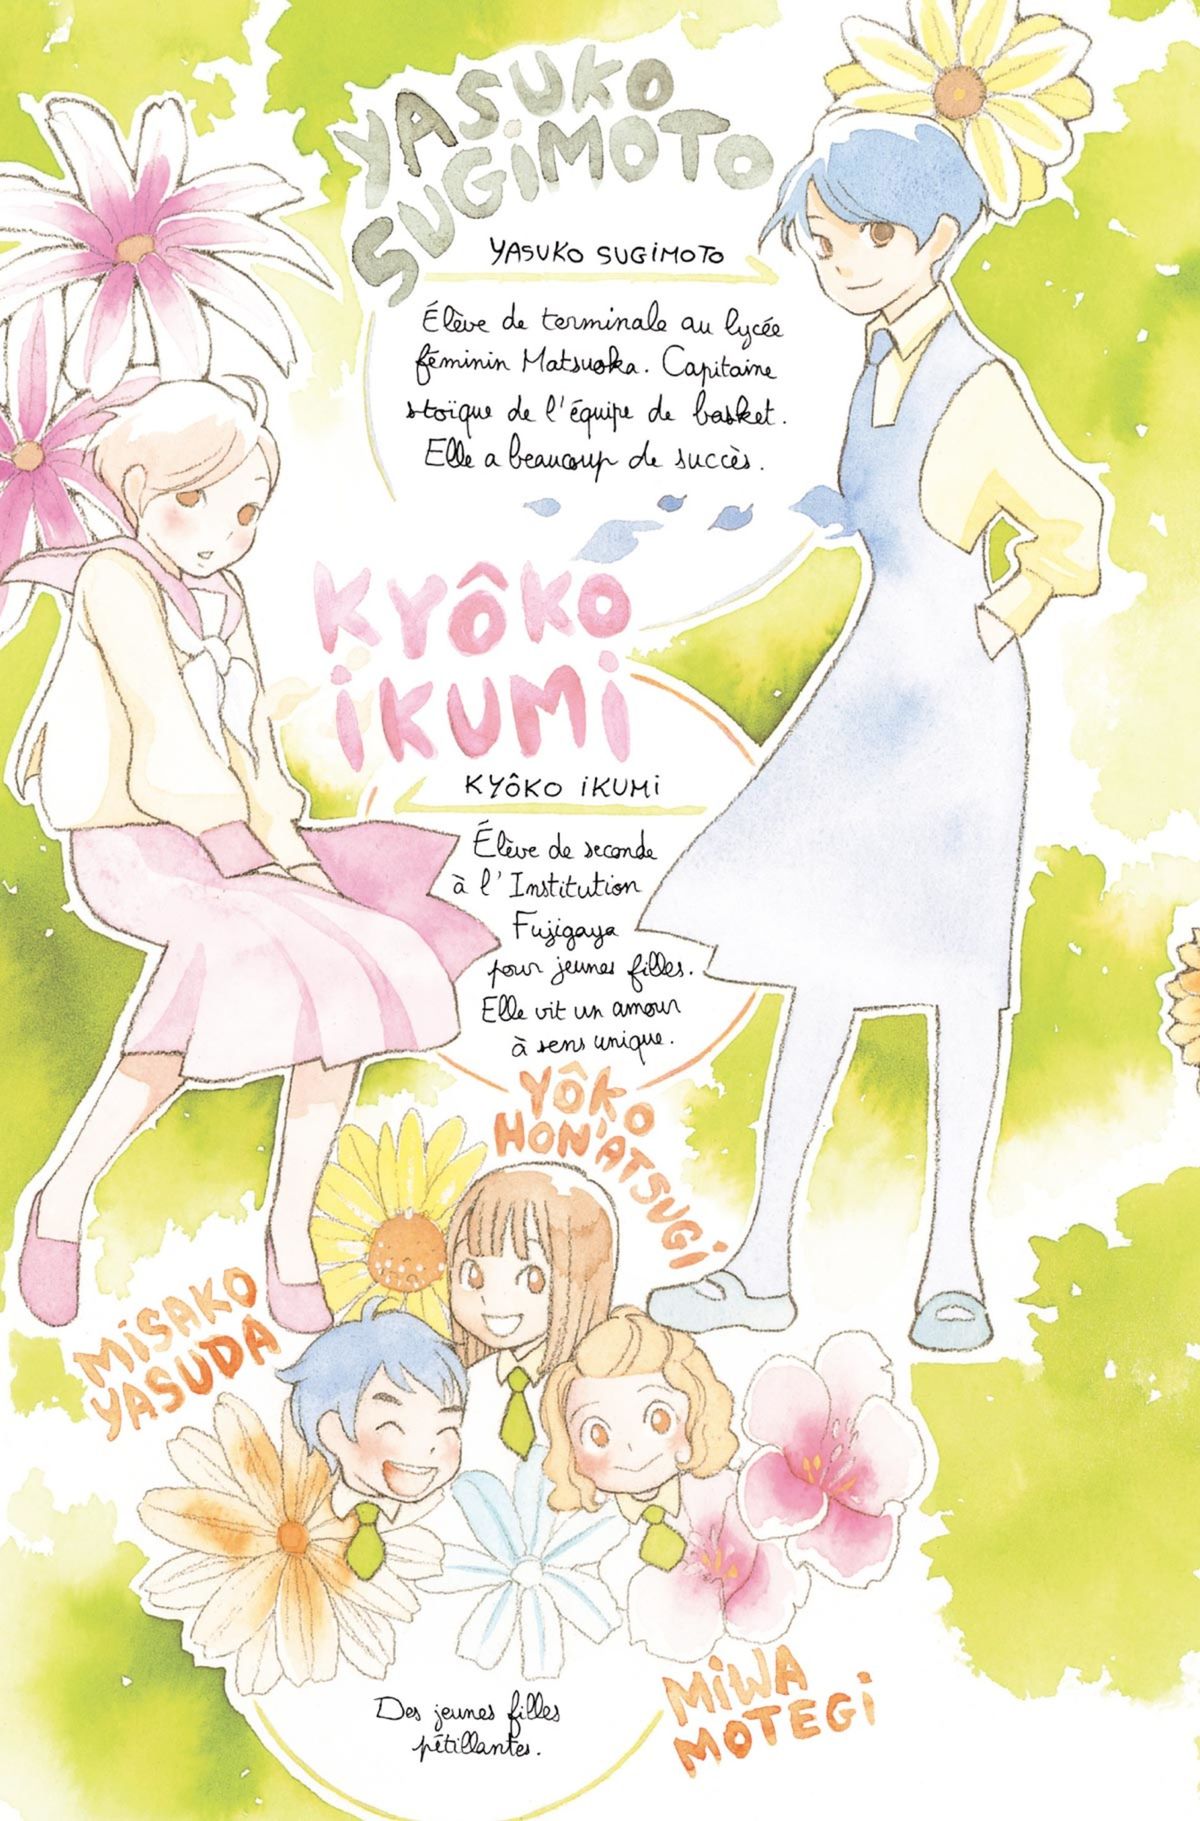 YASUKO
SUGIMOTO
YASUKO SUGIMOTO
Élève de terminale au lycée
féminin Matsuoka. Capitaine
stoïque de l'équipe de basket.
Elle a beaucoup de succès.
KYÔKO
IKUMI
KYÔKO IKUMI
Élève de seconde
à l'Institution
Fujigaya
pour jeunes filles.
Elle vit un amour
à sens unique.
YÔKO
HON'ATSUGI
MISAKO
YASUDA
Des jeunes filles
pétillantes.
MIWA
MOTEGI